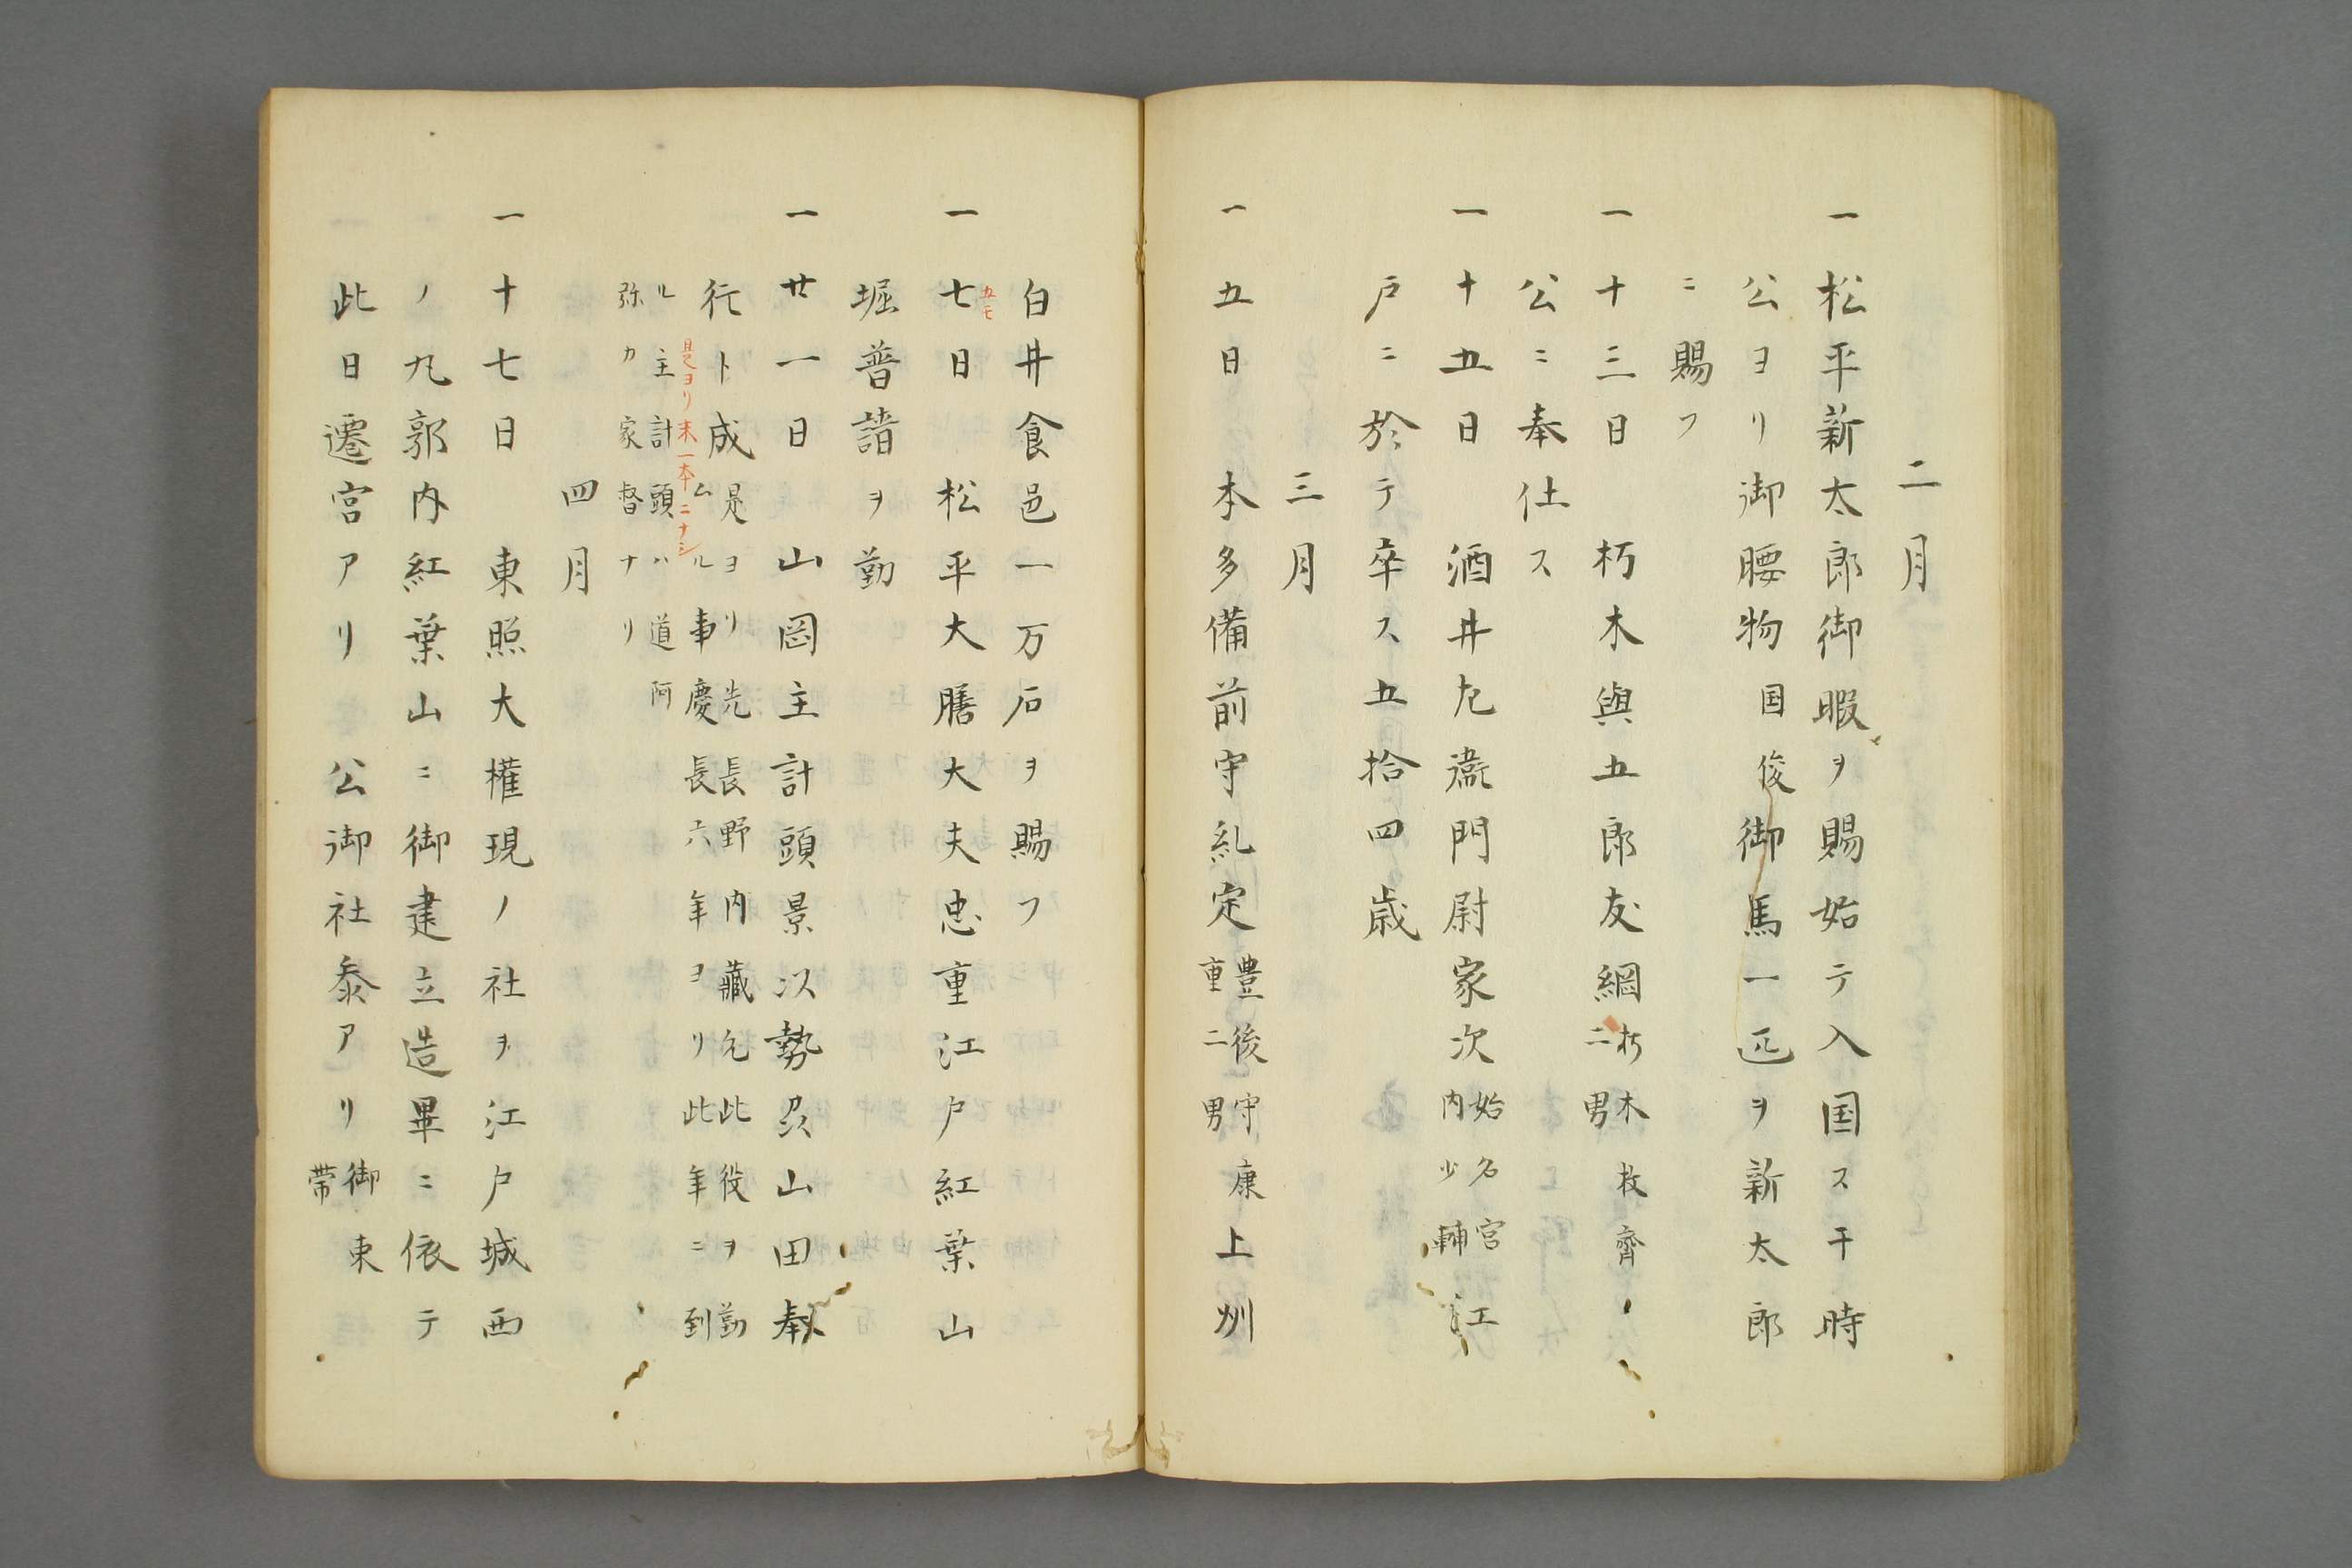 二月
一 松平新太郎御暇ヲ賜始テ入国ス干時
公ヨリ御腰物国俊御馬一疋ヲ新太郎
ニ賜フ
一 十三日 朽木與五郎友綱
朽木牧齊ノ
二男
公ニ奉仕ス
一 十五日 酒井左衞門尉家次
始名宮
内少輔
江
戸ニ於テ卒ス五拾四歳
三月
一 五日 本多備前守紀定
豊後守康
重二男
上州
白井食邑一万石ヲ賜フ
五モ
一 七日松平大膳大夫忠重江戸紅葉山
堀普請ヲ勤
一 廿一日山岡主計頭景以勢刕山田奉
行ト成
是ヨリ先長野内蔵允此役ヲ勤
ムル事慶長六年ヨリ此年ニ到
是ヨリ末一本ニナシ
ル主計頭ハ道阿
弥カ家督ナリ
四月
一 十七日 東照大権現ノ社ヲ江戸城西
ノ丸郭内紅葉山ニ御建立造畢ニ依テ
此日遷宮アリ 公御社参アリ
御束
帯